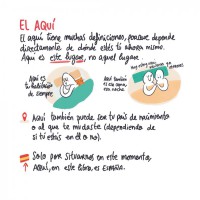 EL AQUÍ
El aquí tiene muchas definiciones, porque depende
directamente de dónde estés tú ahora mismo.
Aquí es este lugar, no aquel lugar.
Aquí es
tu habitación
de siempre.
Aquí también
es esa cama,
esa noche
Aquí también puede ser tu país de nacimiento
o al que te mudaste (dependiendo de
si tú estás en él o no).
Solo por situarnos en este momento,
AQUÍ, en este libro, es ESPAÑA.